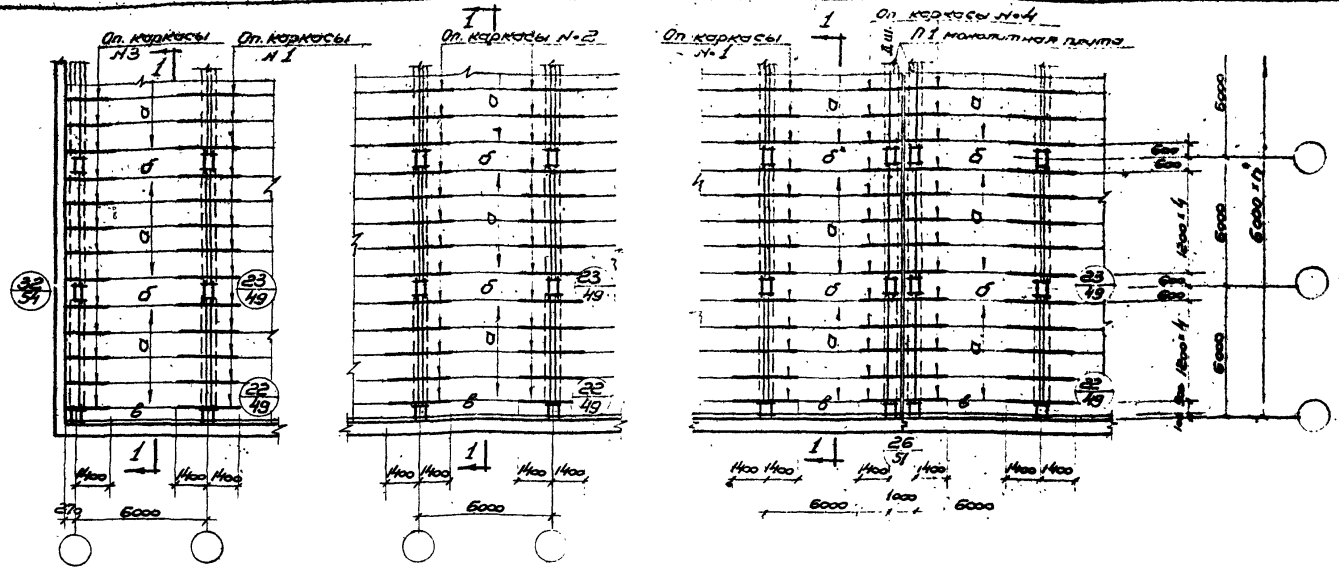 Оп. каркасы
N3
1
Оп. каркасы
N 1
а
б
а
б
а
в
32
54
23
49
22
49
1
1400
1400
1400
270
6000
1
Оп. каркасы N-2
а
б
а
б
а
в
23
49
22
49
1
1400
1400
1400
1400
6000
Оп. каркасы
N-1
1
Д.Ш.
Оп. каркасы N-4
П1 монолитная плита
а
а
б
б
а
а
б
б
а
а
в
в
23
49
22
49
1
26
51
1400
1400
1400
1400
1400
1400
6000
1000
6000
600
600
1200×4
1200×4
6000
6000
6000
6000×п